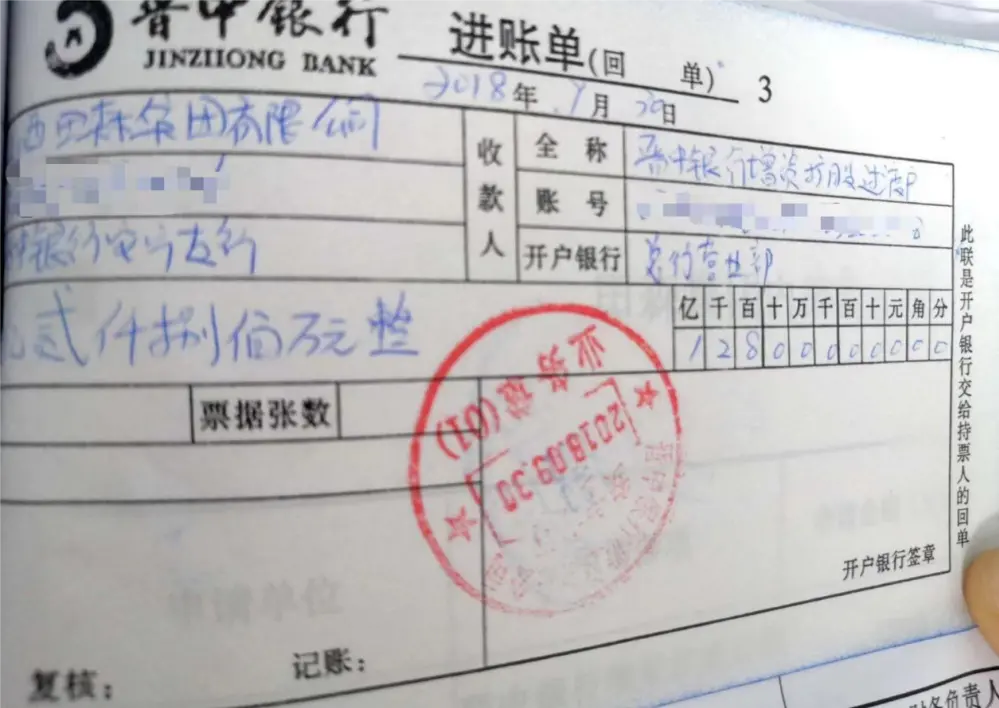 晋中银行
JINZHONG BANK
进账单(回 单) 3
2018年 9月 30日
西田森集团有限公司
收款人
全 称
晋中银行增资扩股过渡户
账 号
开户银行
总行营业部
银行
支行
亿千百十万千百十元角分
贰仟捌佰万元整
1 2 8 0 0 0 0 0 0 0 0
票据张数
业务
(01)
2018.09.30
开户银行签章
复核：
记账：
此联是开户银行交给持票人的回单
申请单位
财务负责人